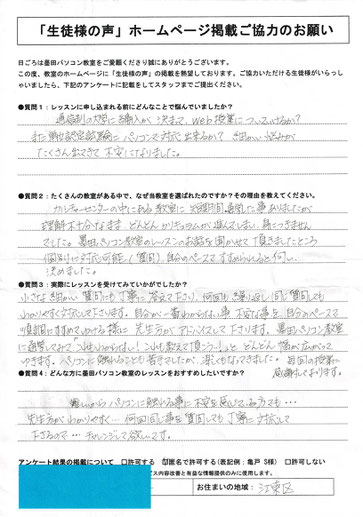 「生徒様の声」ホームページ掲載ご協力のお願い
日ごろは墨田パソコン教室をご愛顧くださり誠にありがとうございます。
この度、教室のホームページに「生徒様の声」の掲載を熱望しております。ご協力いただける生徒様がいらっし
ゃいましたら、下記のアンケートに記載をしてスタッフまでご提出ください。
●質問１：レッスンに申し込まれる前にどんなことで悩んでいましたか？
通信制の大学に編入が決まって、web授業についていけるか？
また単位認定試験にパソコンで対応出来るか？細かい悩みが
たくさん出てきて不安になりました。
●質問２：たくさんの教室がある中で、なぜ当教室を選ばれたのですか？その理由を教えてください。
カルチャーセンターの中にある教室に短期間通った事ありましたが
理解不十分なまま どんどんカリキュラムが進んでしまい、身につきません
でした。墨田パソコン教室のレッスンのお話を聞かせて頂きましたところ
個別に対応可能（質問）自分のペースですすめられると伺い、
決めました。
●質問３：実際にレッスンを受けてみていかがでしたか？
小さな細かい質問にも丁寧に答えて下さり、何回も繰り返し同じ質問しても
わかりやすく対応して下さいます。自分が一番わからない事 不安な事を、自分のペースで
順調にすすめてゆける様に先生方がアドバイスして下さります。墨田パソコン教室
に通室してみて「これもわからない！これも教えて頂こう！」と どんどん 悩みが広がって
ゆきます。パソコンに触れることも苦手でしたが 楽しくもなってきました。毎回の授業に
感謝しております。
●質問４：どんな方に墨田パソコン教室のレッスンをおすすめしたいですか？
難しいから パソコンに触れる事に不安を感じてる方でも…
先生方がわかりやすく… 何回同じ事を質問しても丁寧に対応して
下さるので… チャレンジして欲しいです。
アンケート結果の掲載について　□許可する　☑匿名で許可する（表記例：亀戸 S様）　□許可しない
ビス内容改善と有益な情報提供のみに使用します。
お住まいの地域：江東区